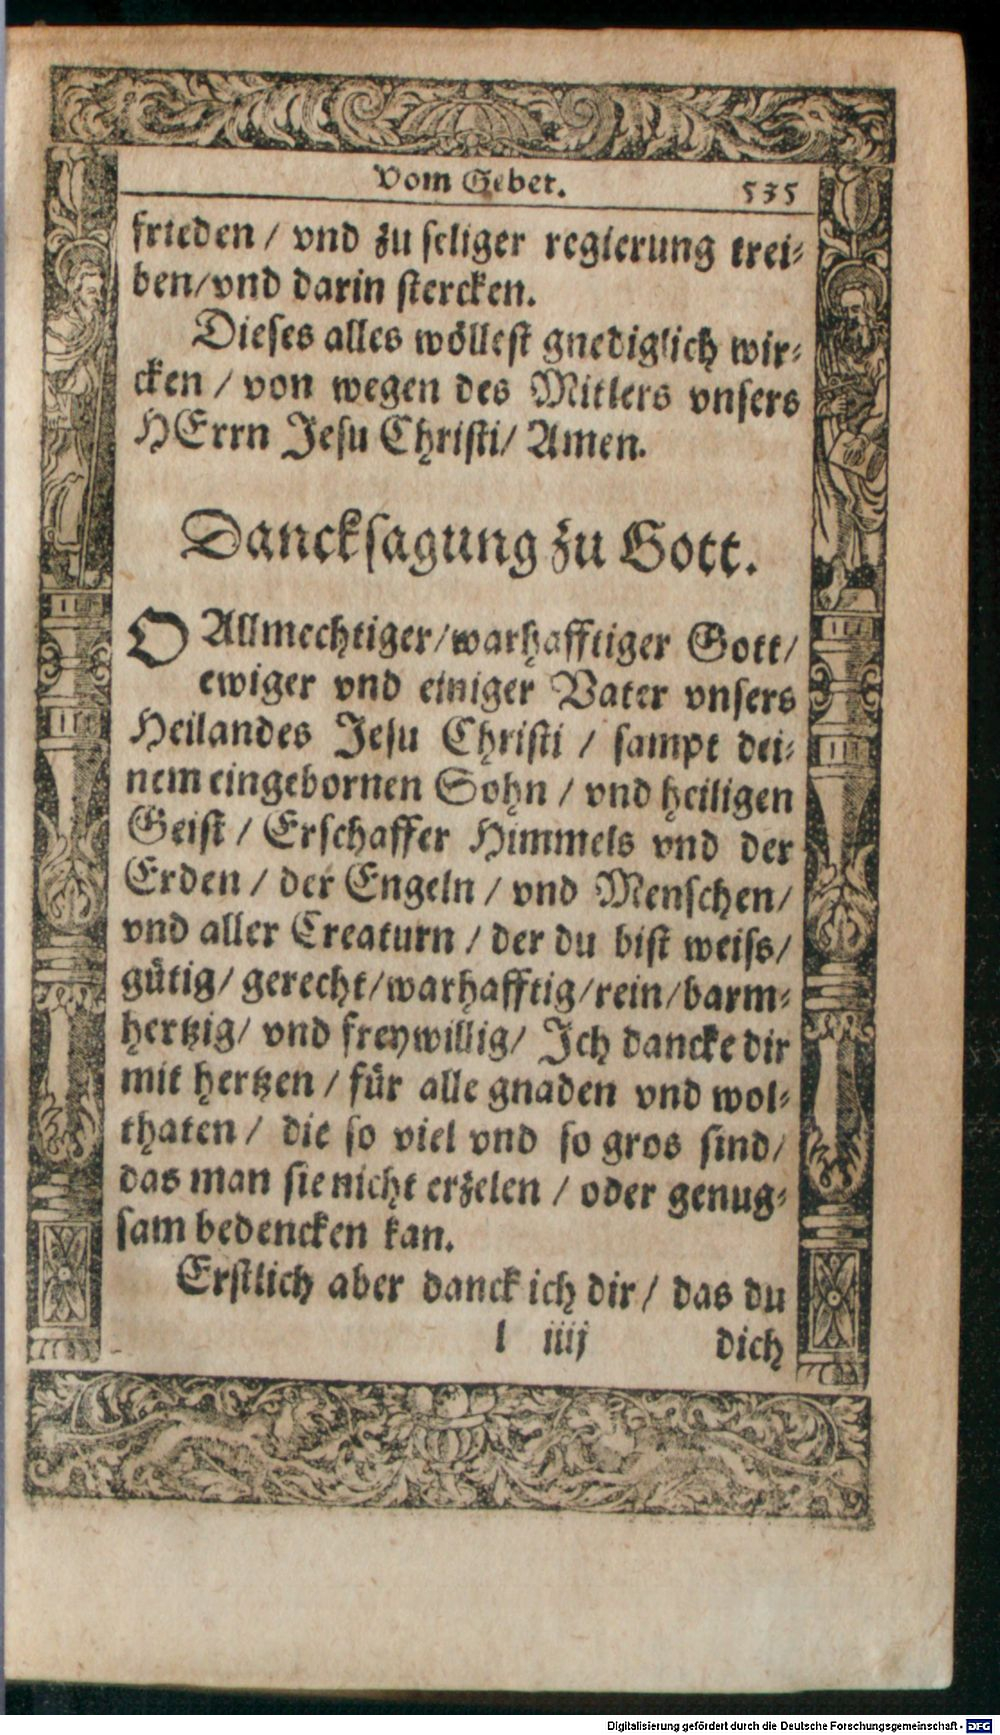 Vom Gebet. 535
frieden / vnd zu seliger regierung trei-
ben/vnd darin stercken.
Dieses alles wöllest gnediglich wir-
cken / von wegen des Mitlers vnsers
HErrn Jesu Christi/ Amen.
Dancksagung zu Gott.
O Allmechtiger/warhafftiger Gott/
ewiger vnd einiger Vater vnsers
Heilandes Jesu Christi / sampt dei-
nem eingebornen Sohn / vnd heiligen
Geist / Erschaffer Himmels vnd der
Erden / der Engeln / vnd Menschen/
vnd aller Creaturn / der du bist weiss/
gütig/ gerecht/warhafftig/rein/barm-
hertzig/ vnd freywillig/ Jch dancke dir
mit hertzen / für alle gnaden vnd wol-
thaten / die so viel vnd so gros sind/
das man sie nicht erzelen / oder genug-
sam bedencken kan.
Erstlich aber danck ich dir / das du
l iiij dich
Digitalisierung gefördert durch die Deutsche Forschungsgemeinschaft - DFG